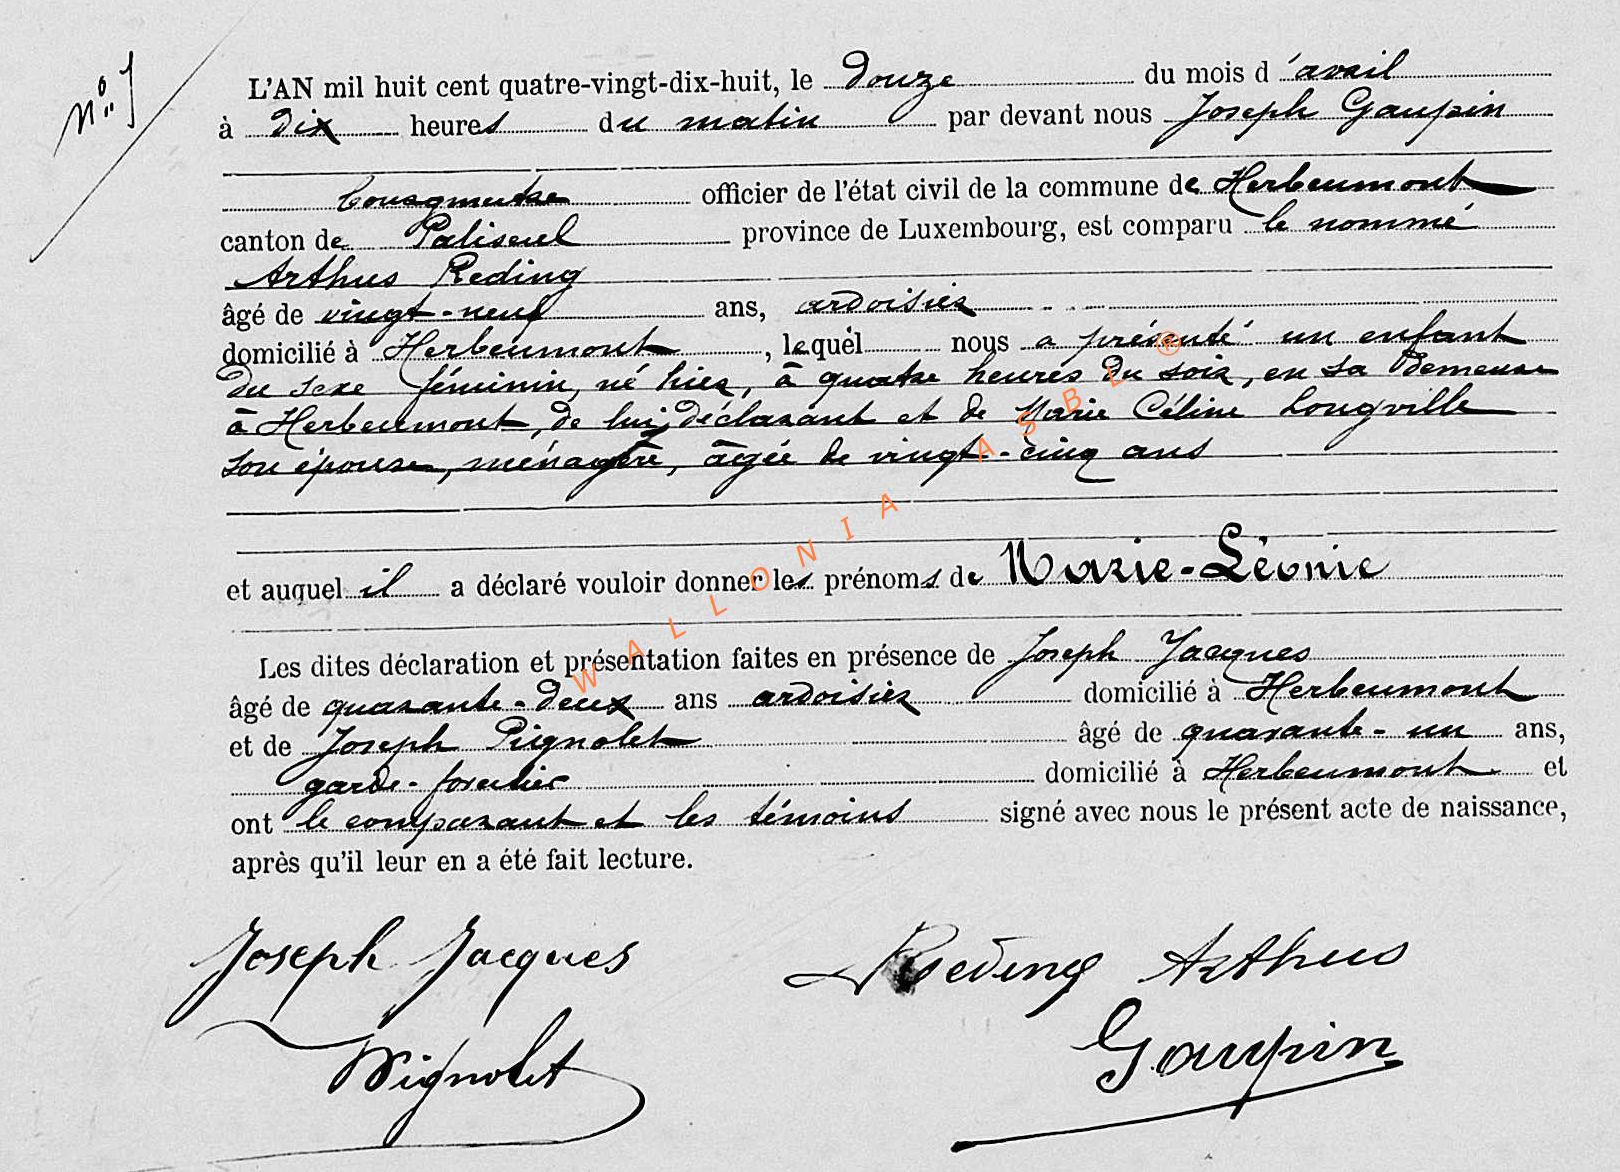 N° 9
L'AN mil huit cent quatre-vingt-dix-huit, le douze du mois d'avril
à dix heures du matin par devant nous Joseph Gaupin
Bourgmestre officier de l'état civil de la commune de Herbeumont
canton de Paliseul province de Luxembourg, est comparu le nommé
Arthur Reding
âgé de vingt-neuf ans, ardoisier
domicilié à Herbeumont, lequel nous a présenté un enfant
du sexe féminin, né hier, à quatre heures du soir, en sa demeure
à Herbeumont, de lui déclarant et de Marie Céline Longville
son épouse, ménagère, âgée de vingt-cinq ans
et auquel il a déclaré vouloir donner les prénoms de Marie-Léonie
Les dites déclaration et présentation faites en présence de Joseph Jacques
âgé de quarante-deux ans ardoisier domicilié à Herbeumont
et de Joseph Pignolet âgé de quarante-un ans,
garde-forestier domicilié à Herbeumont et
ont le comparant et les témoins signé avec nous le présent acte de naissance,
après qu'il leur en a été fait lecture.
Joseph Jacques Reding Arthur
Pignolet Gaupin
WALLONIA ASBL ®